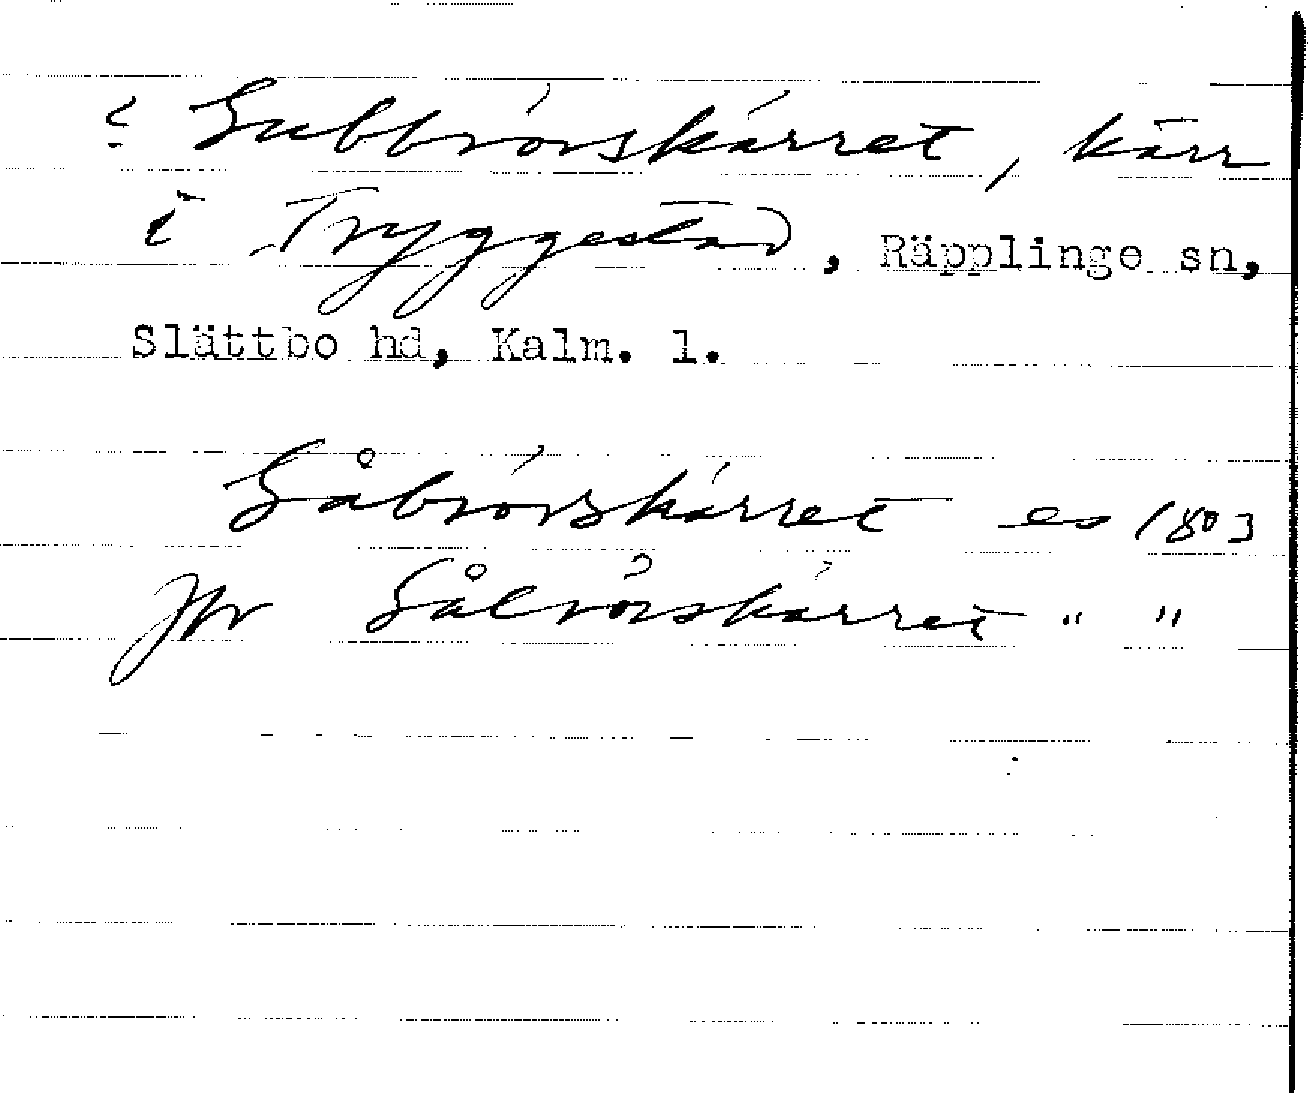 ? Gubbrörskärret, kärr
i Tryggestad, Räpplinge sn,
Slättbo hd, Kalm. l.
Gåbrörskärret es 1803
Jfr Gålrörskärret " "